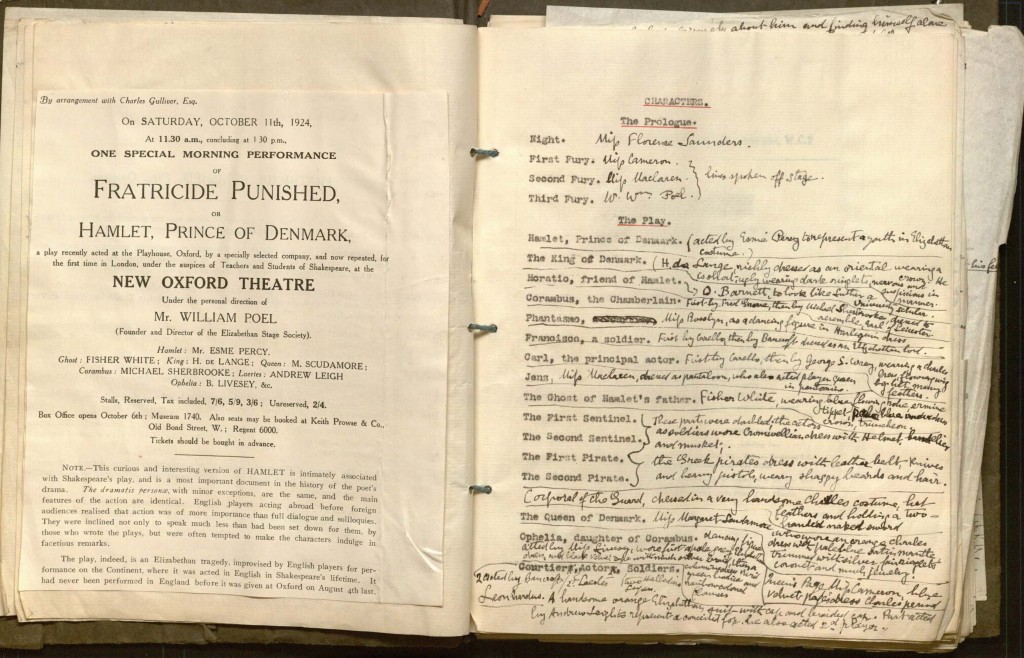 By arrangement with Charles Gulliver, Esq.
On SATURDAY, OCTOBER 11th, 1924,
At 11.30 a.m., concluding at 1 30 p.m.,
ONE SPECIAL MORNING PERFORMANCE
OF
FRATRICIDE PUNISHED,
OR
HAMLET, PRINCE OF DENMARK,
a play recently acted at the Playhouse, Oxford, by a specially selected company, and now repeated, for
the first time in London, under the auspices of Teachers and Students of Shakespeare, at the
NEW OXFORD THEATRE
Under the personal direction of
Mr. WILLIAM POEL
(Founder and Director of the Elizabethan Stage Society).
Hamlet: Mr. ESME PERCY.
Ghost: FISHER WHITE; King: H. DE LANGE; Queen: M. SCUDAMORE;
Corambus: MICHAEL SHERBROOKE; Laertes: ANDREW LEIGH
Ophelia: B. LIVESEY, &c.
Stalls, Reserved, Tax included, 7/6, 5/9, 3/6; Unreserved, 2/4.
Box Office opens October 6th; Museum 1740. Also seats may be booked at Keith Prowse & Co.,
Old Bond Street, W.; Regent 6000.
Tickets should be booked in advance.
NOTE.—This curious and interesting version of HAMLET is intimately associated
with Shakespeare's play, and is a most important document in the history of the poet's
drama. The dramatis personæ, with minor exceptions, are the same, and the main
features of the action are identical. English players acting abroad before foreign
audiences realised that action was of more importance than full dialogue and soliloquies.
They were inclined not only to speak much less than had been set down for them, by
those who wrote the plays, but were often tempted to make the characters indulge in
facetious remarks.
The play, indeed, is an Elizabethan tragedy, improvised by English players for per-
formance on the Continent, where it was acted in English in Shakespeare's lifetime. It
had never been performed in England before it was given at Oxford on August 4th last.
about him and finding himself alone
CHARACTERS.
The Prologue.
Night. Miss Florence Saunders.
First Fury. Miss Cameron.
Second Fury. Miss Maclaren. lines spoken off stage.
Third Fury. W. Wm Poel.
The Play.
Hamlet, Prince of Denmark. (acted by Esme Percy to represent a youth in Elizabethan
costume.)
The King of Denmark. (H. de Lange, richly dressed as an oriental wearing a
Horatio, friend of Hamlet. wearing dark ringlets, nervous and suspicious in manner.
O. Barnett, to look like Luther a University scholar.
Corambus, the Chamberlain. First by Fred Grove, then by Michael Sherbrooke dressed to
resemble Earl Leicester
Phantasmo, Miss Rosslyn, as a dancing figure in Harlequin dress
Francisco, a soldier. First by Carello, then by Bancroft dressed as an Elizabethan lord.
Carl, the principal actor. First by Carello, then by George S. Carey, wearing a Charles
dress flowing wig
big hat many
feathers.
Jens, Miss Maclaren, dressed as pantaloon, who also acted player queen
in pantomime.
The Ghost of Hamlet's father. Fisher White, wearing blue flowing robe ermine
tippet
crown, truncheon
The First Sentinel. These parts were doubled; the actors
The Second Sentinel. as soldiers wore Cromwellian dress with Helmet, bandolier
and musket;
The First Pirate. the Greek pirates dress with leather belt, knives
The Second Pirate. and heavy pistols, wearing shaggy beards and hair.
Corporal of the Guard, dressed in a very handsome Charles costume, hat
feathers and holding a two-
handed naked sword
The Queen of Denmark. Miss Margaret Scudamore who wore an orange Charles
dress with pale blue satin mantle
trimmed with silver
coronet and much jewelry.
Ophelia, daughter of Corambus. dancing figure
acted by Miss Livesey, wore first
Courtiers, Actors, Soldiers.
Queen's Page Miss Cameron, blue
velvet page's dress Charles period
acted by Bancroft
Leonhardus. A handsome orange Elizabethan suit with cap and braided Part acted
by Andrew Leigh to represent a conceited fop. he also acted 2nd player.